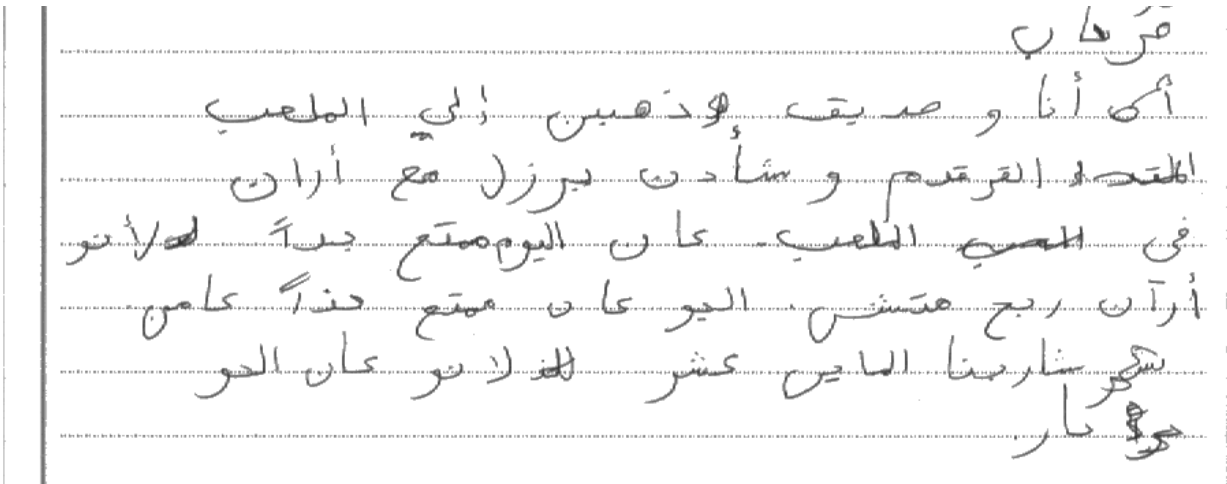 مرحاب
أكا أنا و صديق وذهبين إلي الملعب
القرقدم و شأدن برزل مع أران
في الملعب. كان اليوم ممتع جداً لأنو
أرآن ربح متشس. اليو كان ممتع جذاً كامن.
شاربنا الماين كشر لانو كان الحو
حار.